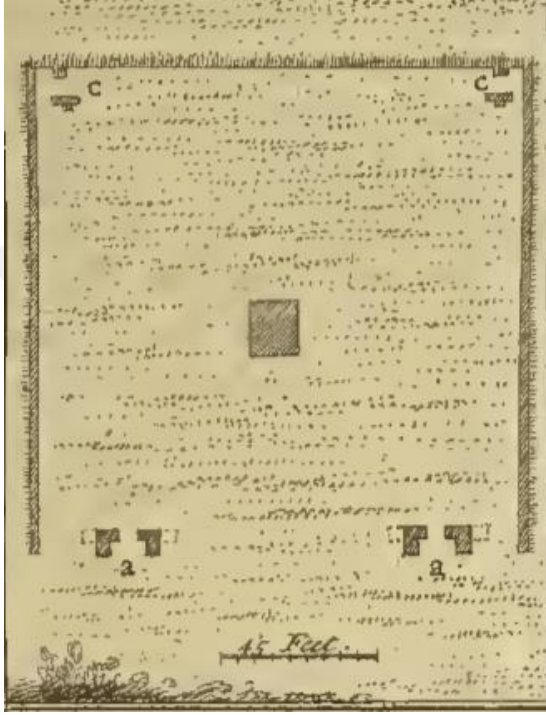 C C
a a
45 Feet.